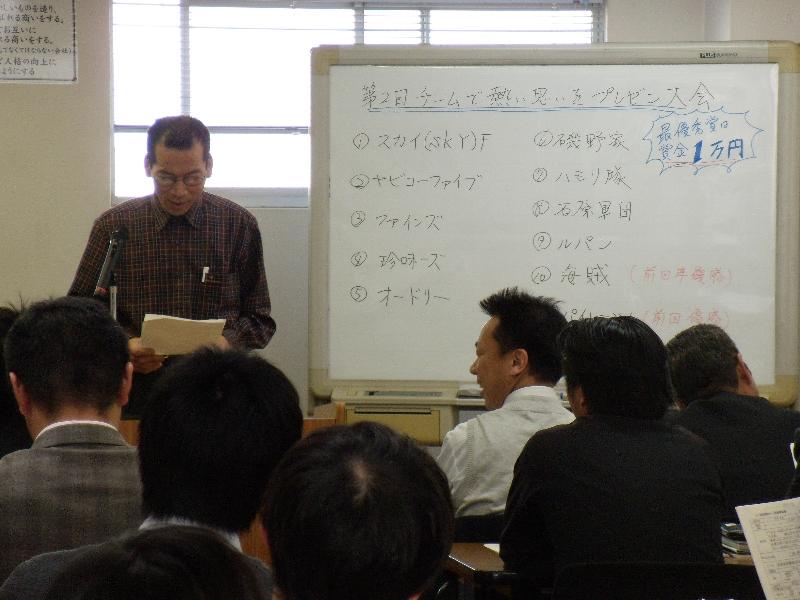 しいものを造り、
れる商いをする。
お互いに
る商いをする。
してなくてはならない会社)
ど人格の向上に
ようにする
第2回 チームで熱い思いをプレゼン大会
最優秀賞は
賞金1万円
① スカイ(SKY)F
② ヤビコーファイブ
③ ファインズ
④ 珍味ーズ
⑤ オードリー
⑥ 磯野家
⑦ ハモリ隊
⑧ 石原軍団
⑨ ルパン
⑩ 海賊 (前回準優勝)
(前回優勝)